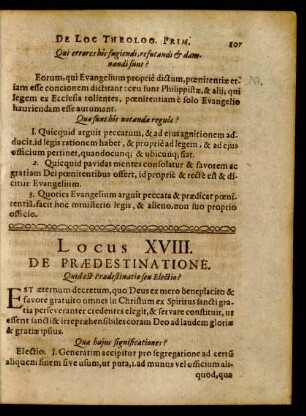 DE LOC THEOLOG. PRIM. 107
Qui errores hîc fugiendi, refutandi & dam-
nandi sunt?
Eorum, qui Evangelium propriè dictum, pœnitentiæ et-
iam esse concionem dictitant: ceu sunt Philippistæ, & alii, qui
legem ex Ecclesia tollentes, pœnitentiam è solo Evangelio
hauriendam esse autumant.
Quæ sunt hîc notandæ regulæ?
1. Quicquid arguit peccatum, & ad ejus agnitionem ad-
ducit, id legis rationem habet, & propriè ad legem, & ad ejus
officium pertinet, quandocunq; & ubicunq; fiat.
2. Quicquid pavidas mentes consolatur & favorem ac
gratiam Dei pœnitentibus offert, id propriè & rectè est & di-
citur Evangelium.
3. Quoties Evangelium arguit peccata & prædicat pœni-
tentiā, facit hoc ministerio legis, & alieno, non suo proprio
officio.
Locus XVIII.
DE PRÆDESTINATIONE.
Quid est Prædestinatio seu Electio?
EST æternum decretum, quo Deus ex mero beneplacito &
favore gratuito omnes in Christum ex Spiritus sancti gra-
tia perseveranter credentes elegit, & servare constituit, ut
essent sancti & irreprehensibiles coram Deo ad laudem gloriæ
& gratiæ ipsius.
Quæ hujus significationes?
Electio. 1. Generatim accipitur pro segregatione ad certū
aliquem finem sive usum, ut puta, 1. ad munus vel officium ali-
quod, qua